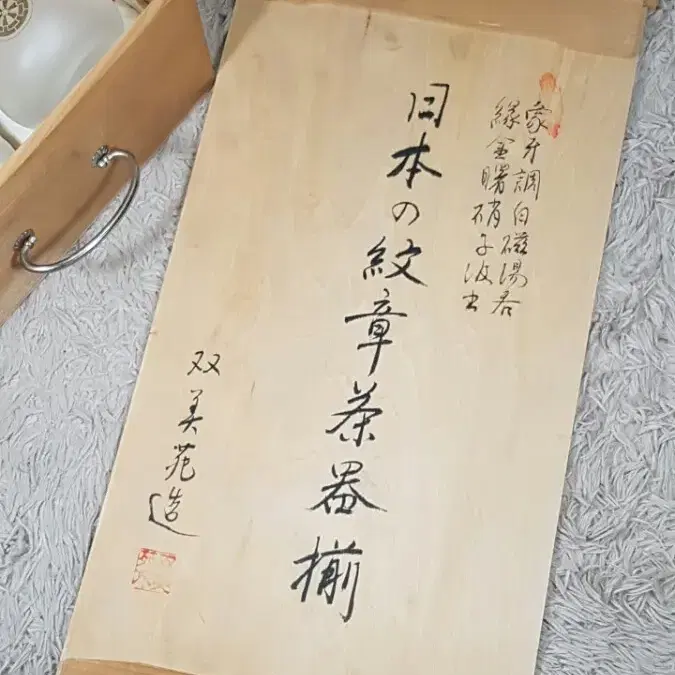 象牙調白磁湯呑
縁金曙硝子汲出
日本の紋章茶器揃
双美苑造